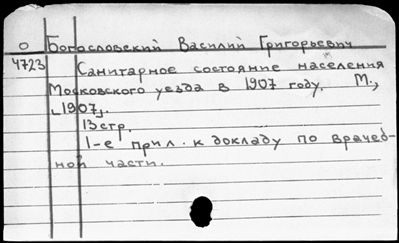 О Богословский Василий Григорьевич
4723 Санитарное состояние населения
Московского уезда в 1907 году. М.,
[1907].
13 стр.
1-е прил. к докладу по врачеб-
ной части.